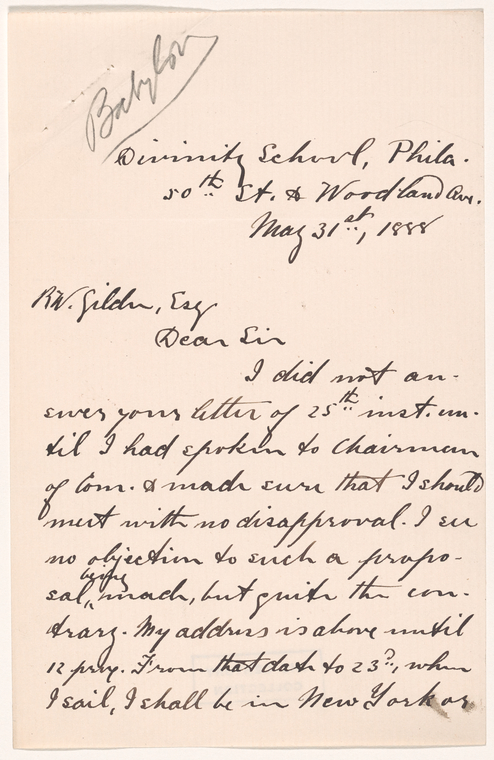 Babylon
Divinity School, Phila.
50th St. & Woodland Ave.
May 31st, 1888
R.W. Gilder, Esq
Dear Sir
I did not an-
swer your letter of 25th inst. un-
til I had spoken to Chairman
of Com. & made sure that I should
meet with no disapproval. I see
no objection to such a propo-
being
sal, made, but quite the con-
trary. My address is above until
12 prox. From that date to 23d, when
I sail, I shall be in New York or